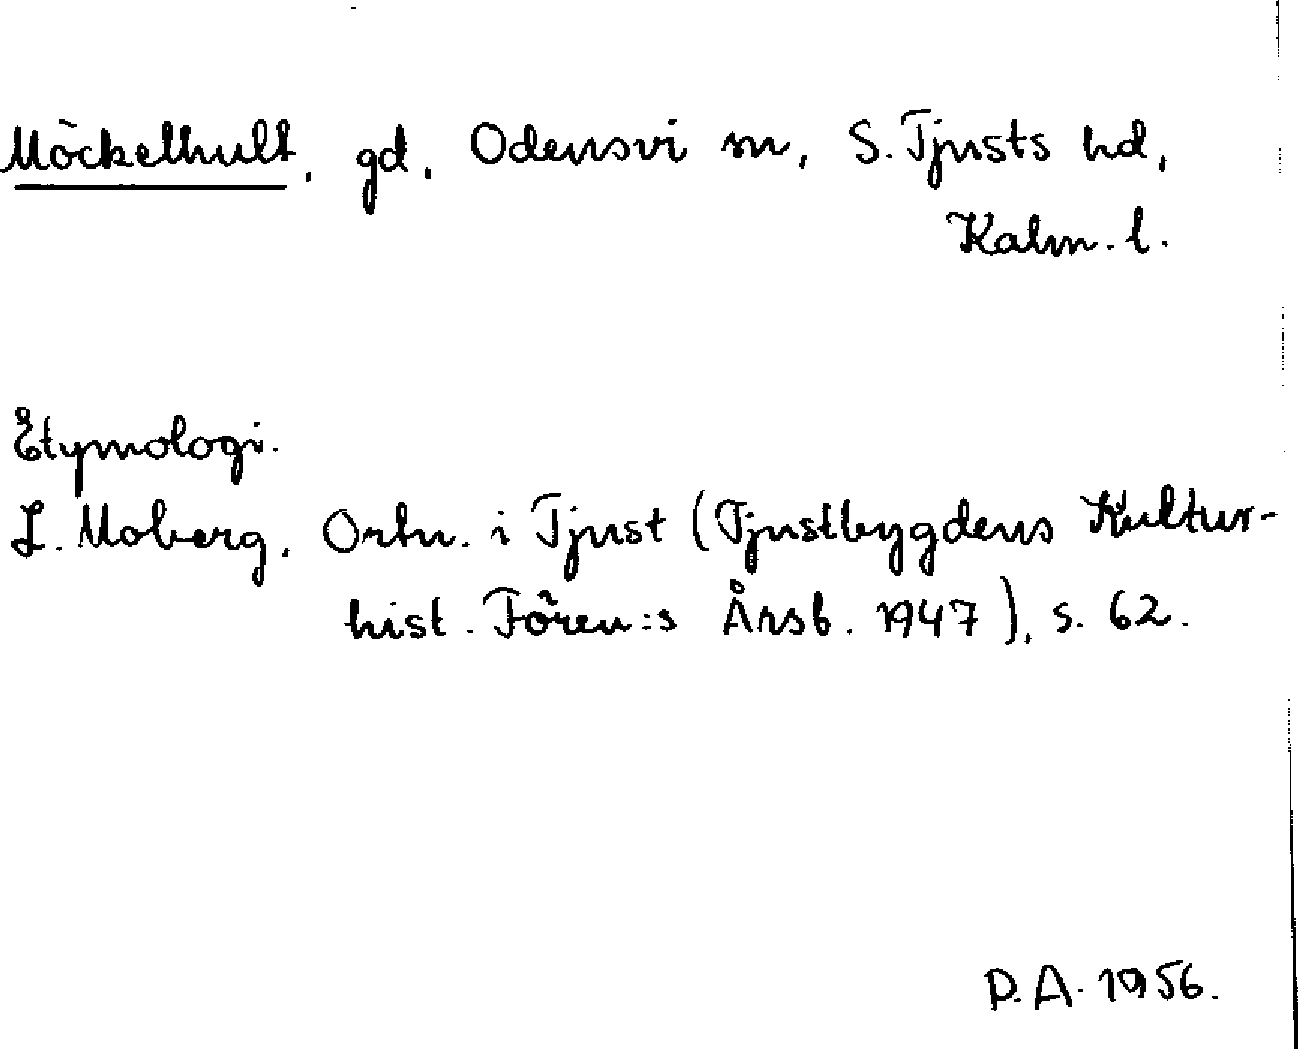 Möckelhult, gd, Odensvi sn, S. Tjusts hd,
Kalm. l.
Etymologi.
L. Moberg, Ortn. i Tjust (Tjustbygdens Kultur-
hist. Fören:s Årsb. 1947), s. 62.
D. A. 1956.